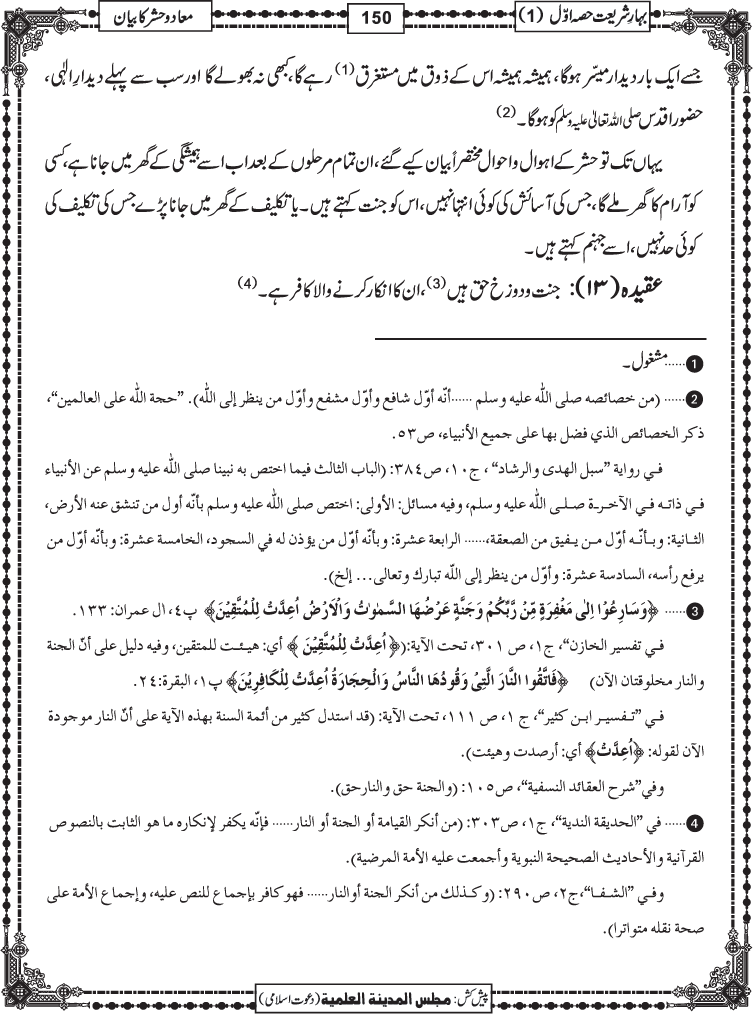 بہارِ شریعت حصہ اوّل (1)
150
معاد و حشر کا بیان
جسے ایک بار دیدار میسّر ہوگا، ہمیشہ ہمیشہ اس کے ذوق میں مستغرق (1) رہے گا، کبھی نہ بھولے گا اور سب سے پہلے دیدارِ الٰہی،
حضور اقدس صلی اللہ تعالیٰ علیہ وسلم کو ہوگا۔ (2)
یہاں تک تو حشر کے اہوال و احوال مختصراً بیان کیے گئے، ان تمام مرحلوں کے بعد اب اسے ہمیشگی کے گھر میں جانا ہے، کسی
کو آرام کا گھر ملے گا، جس کی آسائش کی کوئی انتہا نہیں، اس کو جنت کہتے ہیں۔ یا تکلیف کے گھر میں جانا پڑے جس کی تکلیف کی
کوئی حد نہیں، اسے جہنم کہتے ہیں۔
عقیدہ (۱۳): جنت و دوزخ حق ہیں (3)، ان کا انکار کرنے والا کافر ہے۔ (4)
1 ...... مشغول۔
2 ...... (من خصائصه صلى الله عليه وسلم ...... أنّه أوّل شافع وأوّل مشفع وأوّل من ينظر إلى الله). ”حجة الله على العالمين“،
ذكر الخصائص الذي فضل بها على جميع الأنبياء، ص٥٣.
في رواية ”سبل الهدى والرشاد“ ، ج١٠، ص٣٨٤: (الباب الثالث فيما اختص به نبينا صلى الله عليه وسلم عن الأنبياء
في ذاته في الآخرة صلى الله عليه وسلم، وفيه مسائل: الأولى: اختص صلى الله عليه وسلم بأنّه أول من تنشق عنه الأرض،
الثانية: وبأنّه أوّل من يفيق من الصعقة،...... الرابعة عشرة: وبأنّه أوّل من يؤذن له في السجود، الخامسة عشرة: وبأنّه أوّل من
يرفع رأسه، السادسة عشرة: وأوّل من ينظر إلى الله تبارك وتعالى... إلخ).
3 ...... ﴿وَسَارِعُوْا اِلٰى مَغْفِرَةٍ مِّنْ رَّبِّكُمْ وَجَنَّةٍ عَرْضُهَا السَّمٰوٰتُ وَالْاَرْضُ اُعِدَّتْ لِلْمُتَّقِيْنَ﴾ پ٤، ال عمران: ١٣٣.
في تفسير الخازن“، ج١، ص ٣٠١، تحت الآية:(﴿ اُعِدَّتْ لِلْمُتَّقِيْنَ ﴾ أي: هيئت للمتقين، وفيه دليل على أنّ الجنة
والنار مخلوقتان الآن) ﴿فَاتَّقُوا النَّارَ الَّتِيْ وَقُوْدُهَا النَّاسُ وَالْحِجَارَةُ اُعِدَّتْ لِلْكَافِرِيْنَ﴾ پ١، البقرة:٢٤.
في ”تفسير ابن كثير“، ج ١، ص ١١١، تحت الآية: (قد استدل كثير من أئمة السنة بهذه الآية على أنّ النار موجودة
الآن لقوله: ﴿اُعِدَّتْ﴾ أي: أرصدت وهيئت).
وفي”شرح العقائد النسفية“، ص١٠٥: (والجنة حق والنارحق).
4 ...... في ”الحديقة الندية“، ج١، ص٣٠٣: (من أنكر القيامة أو الجنة أو النار...... فإنّه يكفر لإنكاره ما هو الثابت بالنصوص
القرآنية والأحاديث الصحيحة النبوية وأجمعت عليه الأمة المرضية).
وفي ”الشفا“،ج٢، ص٢٩٠: (وكذلك من أنكر الجنة أوالنار...... فهو كافر بإجماع للنص عليه، وإجماع الأمة على
صحة نقله متواترا).
پیش کش: مجلس المدینۃ العلمیۃ (دعوت اسلامی)